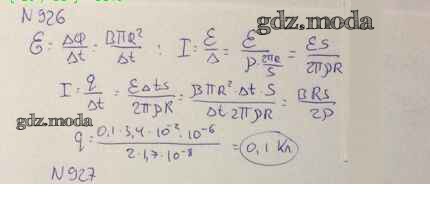 N 926
gdz.moda
Ɛ = ΔΦ/Δt = BπR²/Δt ; I = Ɛ/Δ = Ɛ/(ρ · 2πR/S) = ƐS/2πρR
I = q/Δt = ƐΔtS/2πρR = BπR² · Δt · S/Δt 2πρR = BRS/2ρ
gdz.moda
q = 0,1 · 3,4 · 10⁻² · 10⁻⁶/2 · 1,7 · 10⁻⁸ = 0,1 Кл
N 927